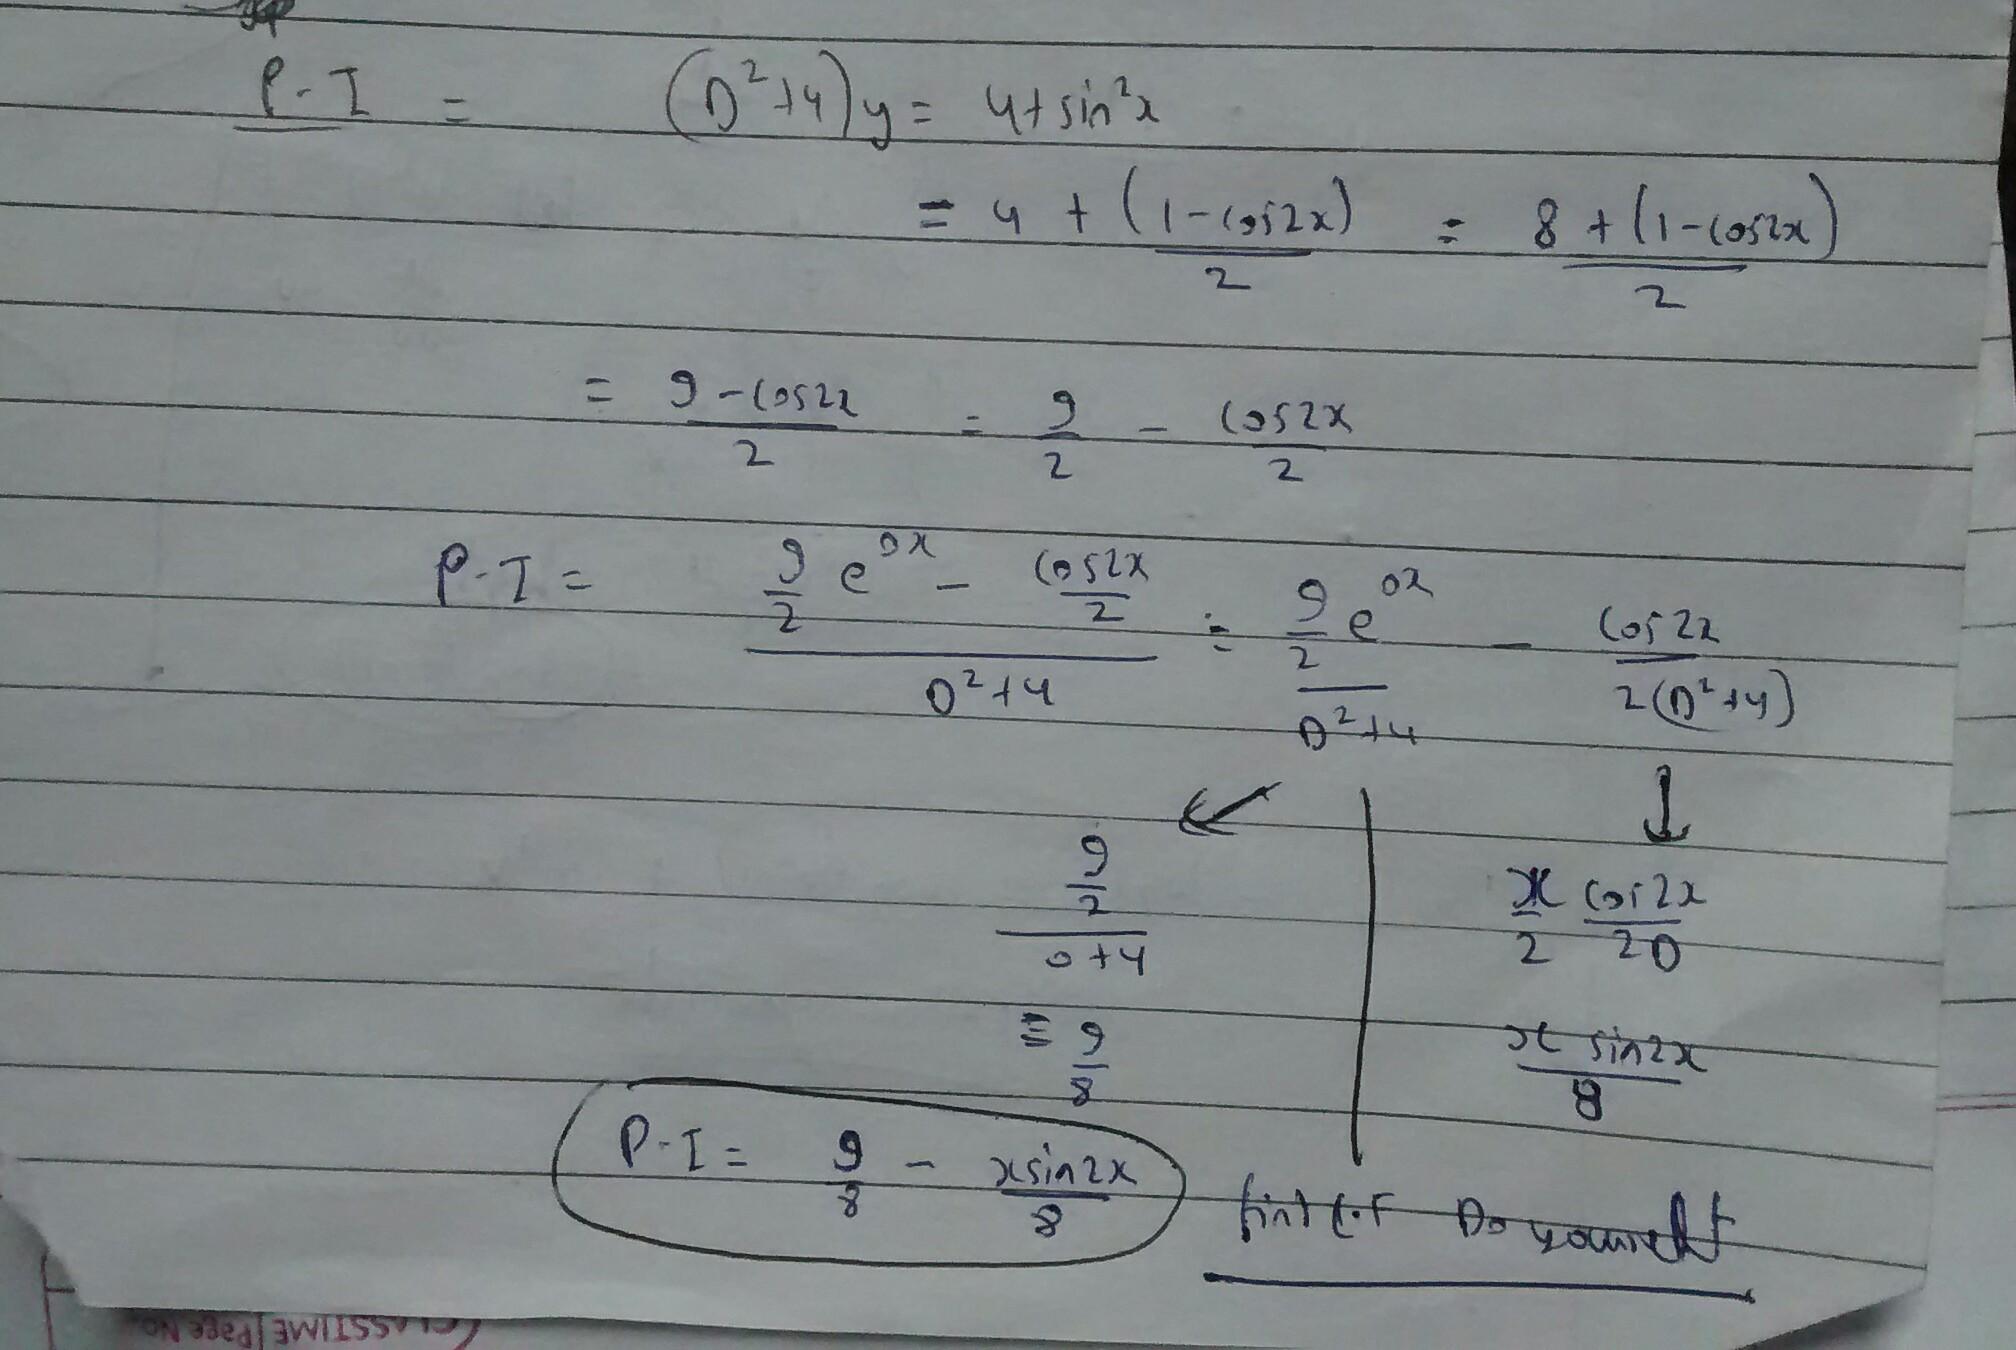 P-I = (D²+4)y = 4+sin²x
= 4 + (1-cos2x)/2 = 8+(1-cos2x)/2
= 9-cos2x/2 = 9/2 - cos2x/2
P-I = (9/2 e^0x - cos2x/2)/(D²+4) = (9/2 e^0x)/(D²+4) - cos2x/2(D²+4)
↙ ↓
(9/2)/(0+4) x/2 cos2x/2D
= 9/8 x sin2x/8
P-I = 9/8 - xsin2x/8 find C.F Do yourself
CLASSTIME Page No.